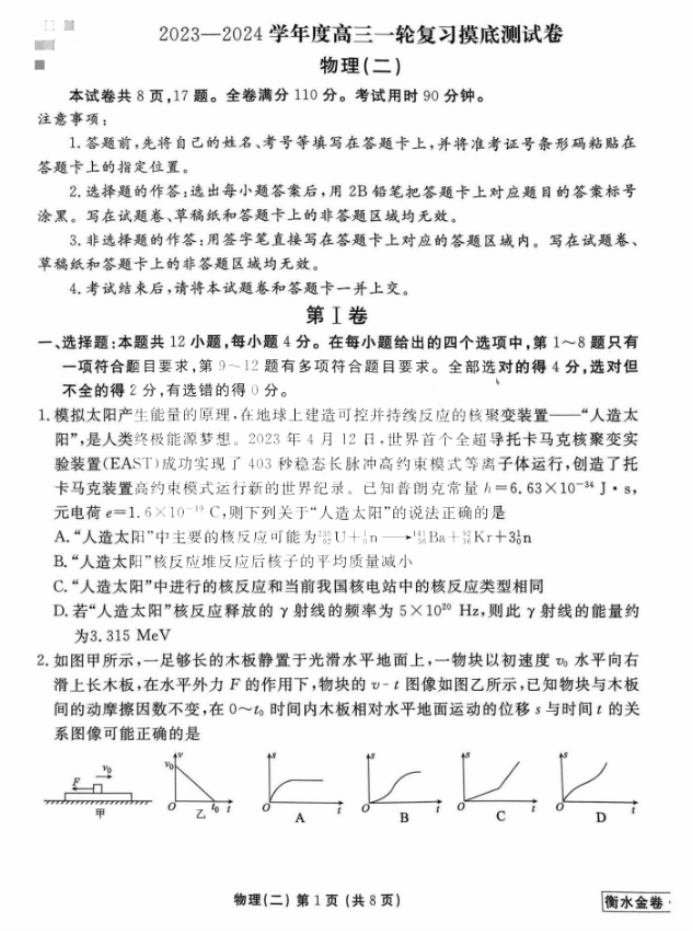 2023—2024学年度高三一轮复习摸底测试卷
物理(二)
本试卷共8页,17题。全卷满分110分。考试用时90分钟。
注意事项:
1.答题前,先将自己的姓名、考号等填写在答题卡上,并将准考证号条形码粘贴在
答题卡上的指定位置。
2.选择题的作答:选出每小题答案后,用2B铅笔把答题卡上对应题目的答案标号
涂黑。写在试题卷、草稿纸和答题卡上的非答题区域均无效。
3.非选择题的作答:用签字笔直接写在答题卡上对应的答题区域内。写在试题卷、
草稿纸和答题卡上的非答题区域均无效。
4.考试结束后,请将本试题卷和答题卡一并上交。
第Ⅰ卷
一、选择题:本题共12小题,每小题4分。在每小题给出的四个选项中,第1~8题只有
一项符合题目要求,第9~12题有多项符合题目要求。全部选对的得4分,选对但
不全的得2分,有选错的得0分。
1.模拟太阳产生能量的原理,在地球上建造可控并持续反应的核聚变装置——“人造太
阳”,是人类终极能源梦想。2023年4月12日,世界首个全超导托卡马克核聚变实
验装置(EAST)成功实现了403秒稳态长脉冲高约束模式等离子体运行,创造了托
卡马克装置高约束模式运行新的世界纪录。已知普朗克常量h=6.63×10⁻³⁴ J·s,
元电荷e=1.6×10⁻¹⁹ C,则下列关于“人造太阳”的说法正确的是
A.“人造太阳”中主要的核反应可能为²³⁵₉₂U+¹₀n→¹⁴¹₅₆Ba+⁹²₃₆Kr+3¹₀n
B.“人造太阳”核反应堆反应后核子的平均质量减小
C.“人造太阳”中进行的核反应和当前我国核电站中的核反应类型相同
D.若“人造太阳”核反应释放的γ射线的频率为5×10²⁰ Hz,则此γ射线的能量约
为3.315 MeV
2.如图甲所示,一足够长的木板静置于光滑水平地面上,一物块以初速度v₀水平向右
滑上长木板,在水平外力F的作用下,物块的v-t图像如图乙所示,已知物块与木板
间的动摩擦因数不变,在0~t₀时间内木板相对水平地面运动的位移s与时间t的关
系图像可能正确的是
F v₀ 甲
v v₀ O t₀ t 乙
s O t A
s O t B
s O t C
s O t D
物理(二) 第1页(共8页)
衡水金卷·